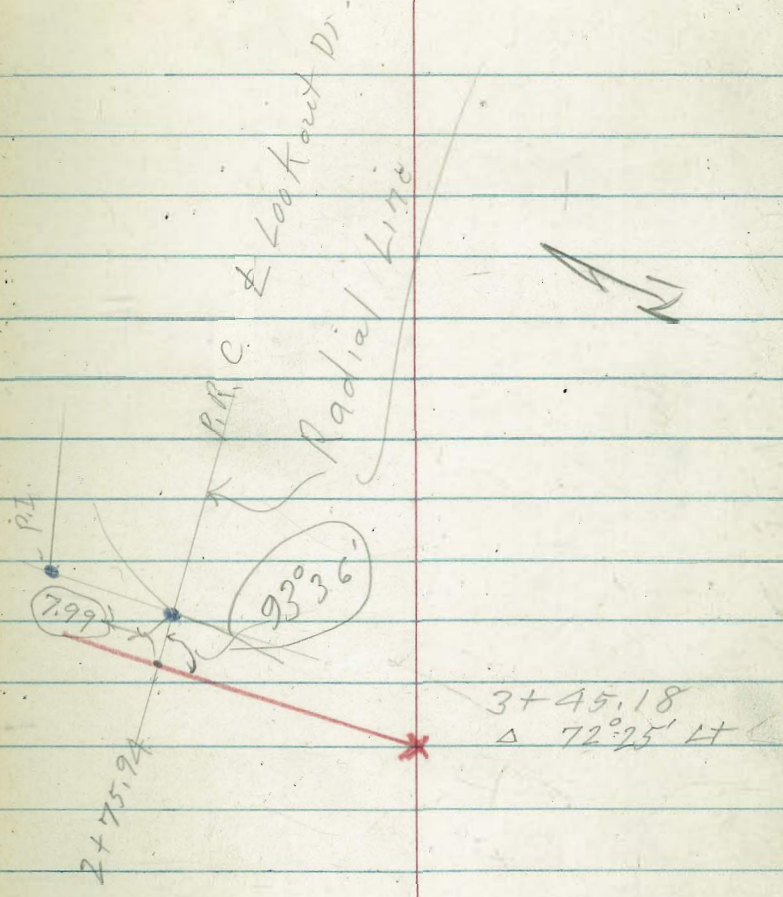 ℄ Lookout Dr.
Radial Line
P.R.C.
P.I.
7.99'
93°36'
2+75.94
3+45.18
Δ 72°25' Lt
N